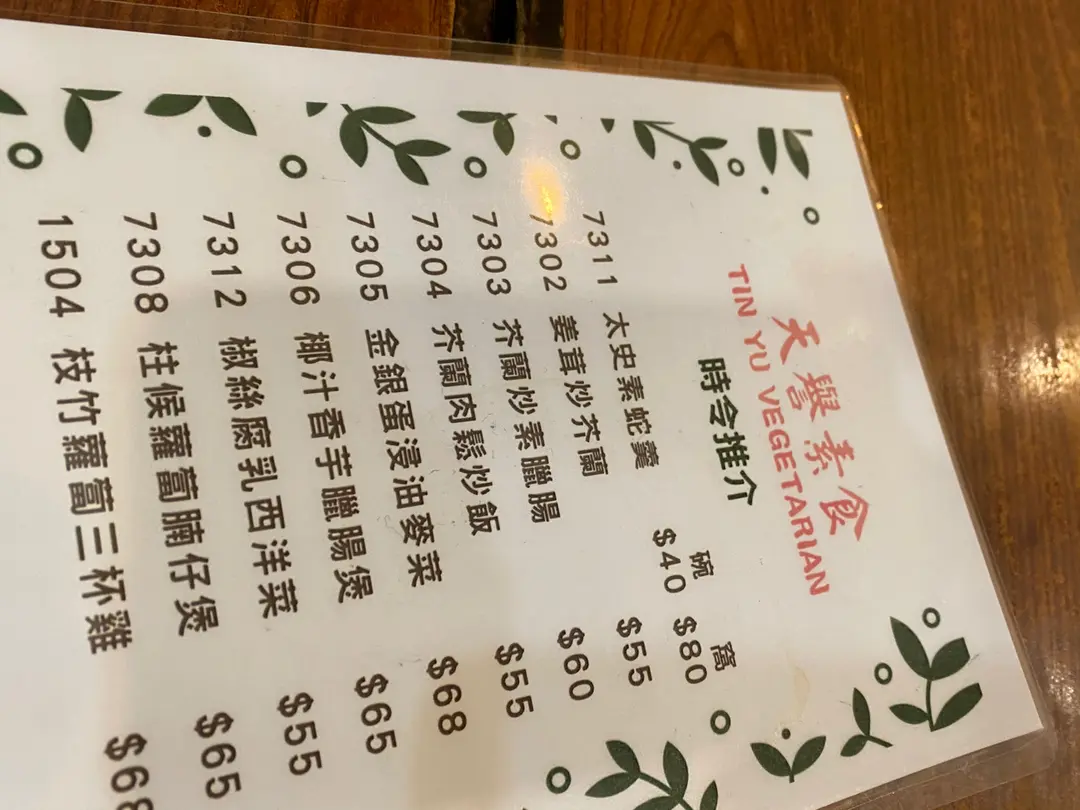 天譽素食
TIN YU VEGETARIAN
時令推介
碗 窩
7311 太史素蛇羹 $40 $80
7302 姜茸炒芥蘭 $55
7303 芥蘭炒素臘腸 $60
7304 芥蘭肉鬆炒飯 $55
7305 金銀蛋浸油麥菜 $68
7306 椰汁香芋臘腸煲 $65
7312 椒絲腐乳西洋菜 $55
7308 柱候蘿蔔腩仔煲 $65
1504 枝竹蘿蔔三杯雞 $68